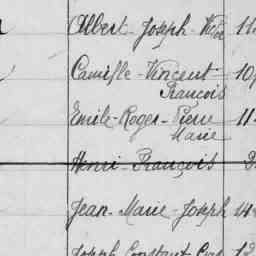 Albert-Joseph-Victor 11
Camille-Vincent-
François
10
Emile-Roger-Pierre 11
Marie
Henri-François
Jean-Marie-Joseph 14
Joseph Constant 12